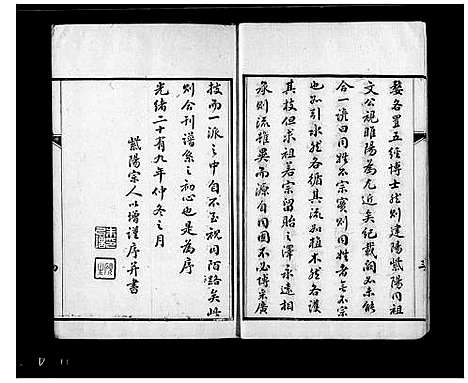 婺各置五經博士然則建陽紫陽同祖
文公視睢陽為尤近矣紀載閒如未能
合一譜曰同姓不宗實則同姓者無不宗
也如引水然各循其流如植木然各護
其枝但求祖若宗留貽之澤永遠相
承則流雖異而源自同固不必博采廣
技而一派之中自不至視同陌路矣此
則合刊譜系之初心也是為序
光緒二十有九年仲冬之月
紫陽宗人以增謹序并書